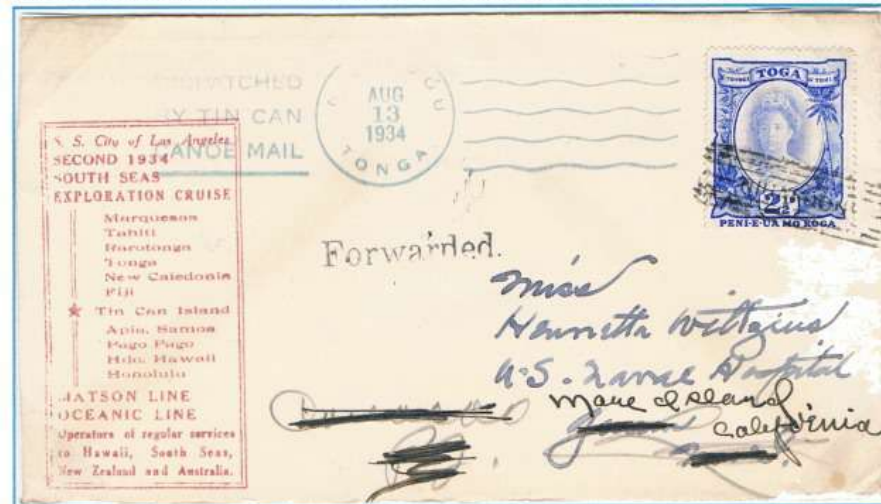 PATCHED
BY TIN CAN
CANOE MAIL
AUG
13
1934
TONGA
TOGA
2½
PENI-E-UA MO KOGA
S. S. City of Los Angeles
SECOND 1934
SOUTH SEAS
EXPLORATION CRUISE
Marquesas
Tahiti
Rarotonga
Tonga
New Caledonia
Fiji
Tin Can Island
Apia, Samoa
Pago Pago
Hilo, Hawaii
Honolulu
MATSON LINE
OCEANIC LINE
Operators of regular services
to Hawaii, South Seas,
New Zealand and Australia.
Forwarded.
Miss
Henrietta
U.S. Naval Hospital
Mare Island
California